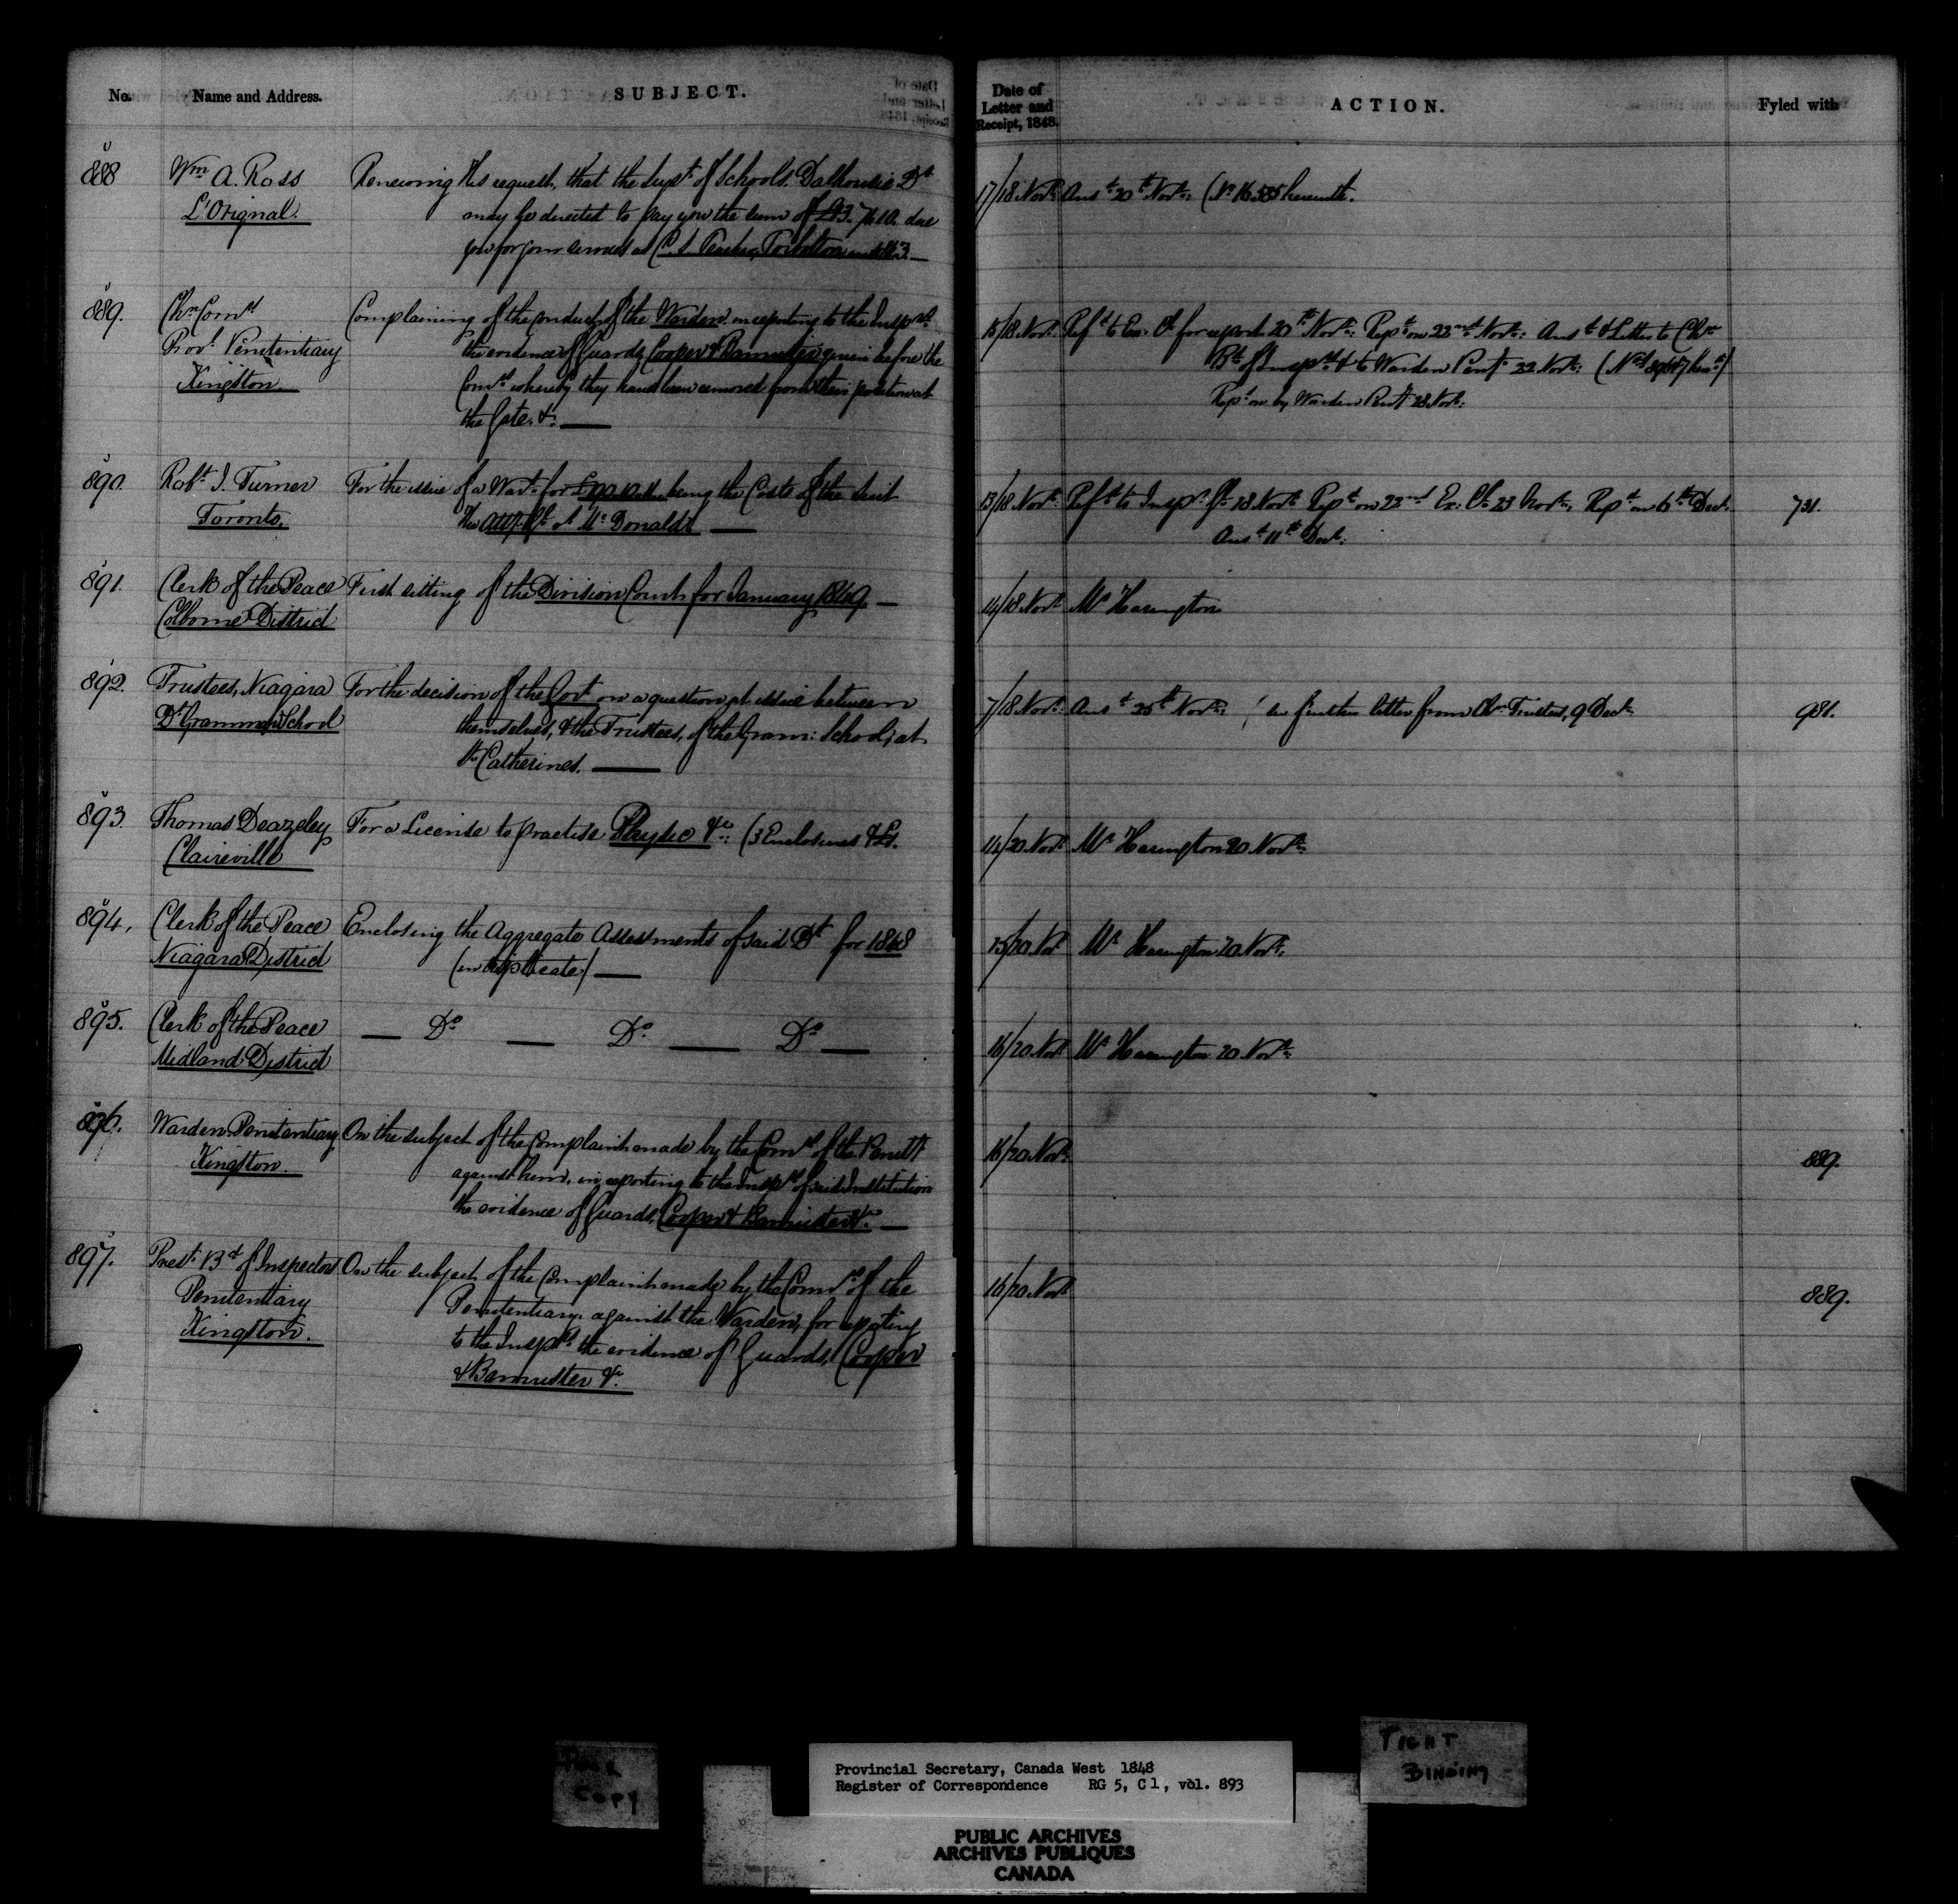 No.
Name and Address.
SUBJECT.
Date of
Letter and
Receipt, 1848.
ACTION.
Fyled with
888
Wm A. Ross
L'Orignal.
Renewing his request, that the Supt. of Schools, Dalhousie Dt.
may be directed to pay you the sum of
due
you for your services as C. S. Teacher,
17/18 Novr.
Ansd. 20th Novr. (No. 16.555 herewith.
889.
Chn. Comrs
Provl. Penitentiary
Kingston.
Complaining of the conduct of the Warden in reporting to the Insprs.
the evidence of Guards Cooper & Bannister given before the
Comrs whereby they have been removed from their position at
the Gate. &c.
15/18 Novr.
Refd. to Ex. Cl. for report 20th Novr: Repd. on 22nd Novr: Ansd. & Letter to Chn
Bd. of Insprs. & to Warden Penty. 22 Novr:
Repd. on by Warden Penty 28 Novr:
890.
Robt. I. Turner
Toronto.
For the issue of a Wart. for being the Costs of the Suit
the Atty. Gl. vs McDonald
13/18 Novr.
Refd. to Inspr. Gl. 18 Novr. Repd. on 22nd Ex: Cl. 23 Novr. Repd. on 6th Decr.
Ansd. 11th Decr.
731.
891.
Clerk of the Peace
Colborne District
First sitting of the Division Courts for January 1849.
14/18 Novr
Mr Harington
892.
Trustees, Niagara
Dt. Grammar School
For the decision of the Govt. on a question at issue between
themselves, & the Trustees, of the Gram: School, at
St. Catherines.
7/18 Novr.
Ansd. 25th Novr: further letter from Chn. Trustees, 9 Decr.
981.
893.
Thomas Deazeley
Claireville
For a License to practise Physic &c: (3 Enclosures
14/20 Novr.
Mr Harington 20 Novr:
894.
Clerk of the Peace
Niagara District
Enclosing the Aggregate Assessments of said Dt. for 1848
(in duplicate)
15/20 Novr
Mr Harington 20 Novr:
895.
Clerk of the Peace
Midland District
— Do — Do — Do —
16/20 Novr
Mr Harington 20 Novr:
896.
Warden Penitentiary
Kingston.
On the subject of the Complaint made by the Comrs of the Penity
against him, in reporting to the Insprs of said Institution
the evidence of Guards, Cooper & Bannister &c.
16/20 Novr.
889.
897.
Prest. Bd. of Inspectors
Penitentiary
Kingston.
On the subject of the Complaint made by the Comrs of the
Penitentiary, against the Warden, for reporting
to the Insprs the evidence of Guards, Cooper
& Bannister &c.
16/20 Novr
889.
Poor
Copy
TIGHT
BINDING
Provincial Secretary, Canada West 1848
Register of Correspondence RG 5, C 1, vol. 893
PUBLIC ARCHIVES
ARCHIVES PUBLIQUES
CANADA